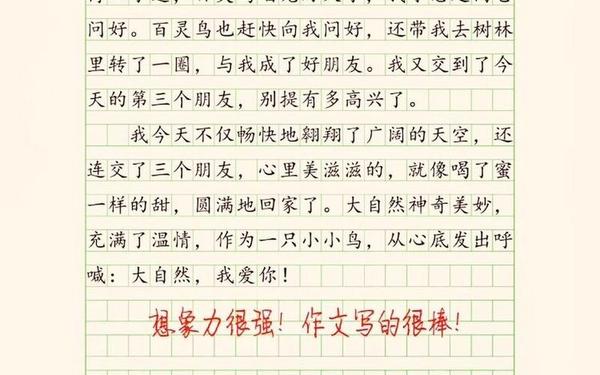 问好。百灵鸟也赶快向我问好，还带我去树林
里转了一圈，与我成了好朋友。我又交到了今
天的第三个朋友，别提有多高兴了。
我今天不仅畅快地翱翔了广阔的天空，还
连交了三个朋友，心里美滋滋的，就像喝了蜜
一样的甜，圆满地回家了。大自然神奇美妙，
充满了温情，作为一只小小鸟，从心底发出呼
喊：大自然，我爱你！
想象力很强！作文写的很棒！